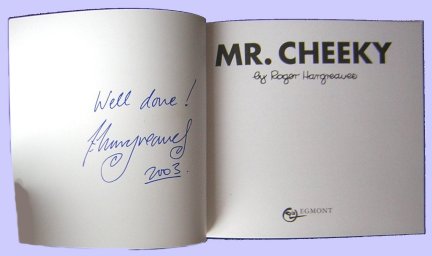 Well done!
AHargreaves
2003.
MR. CHEEKY
by Roger Hargreaves
EGMONT